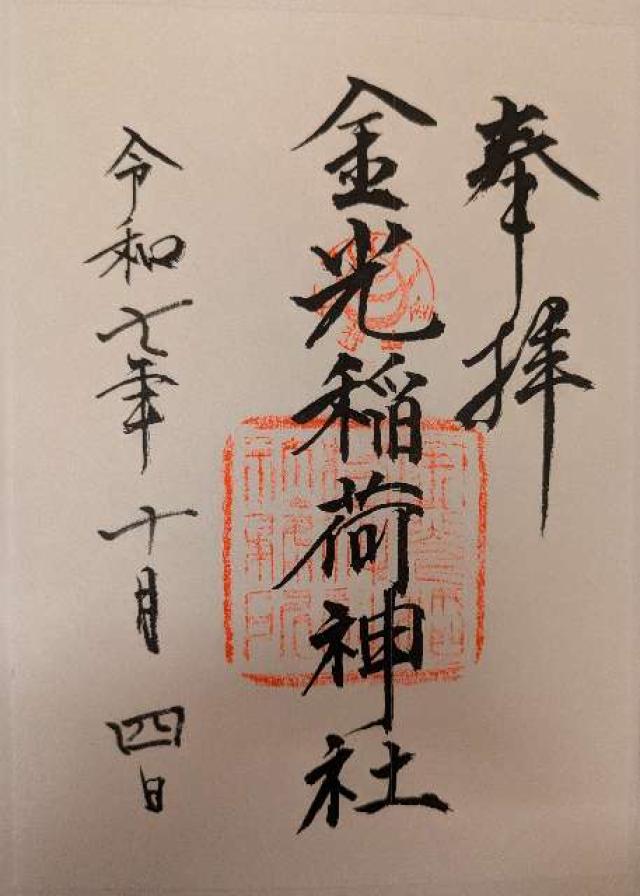 奉拝
金光稲荷神社
令和七年 十月 四日